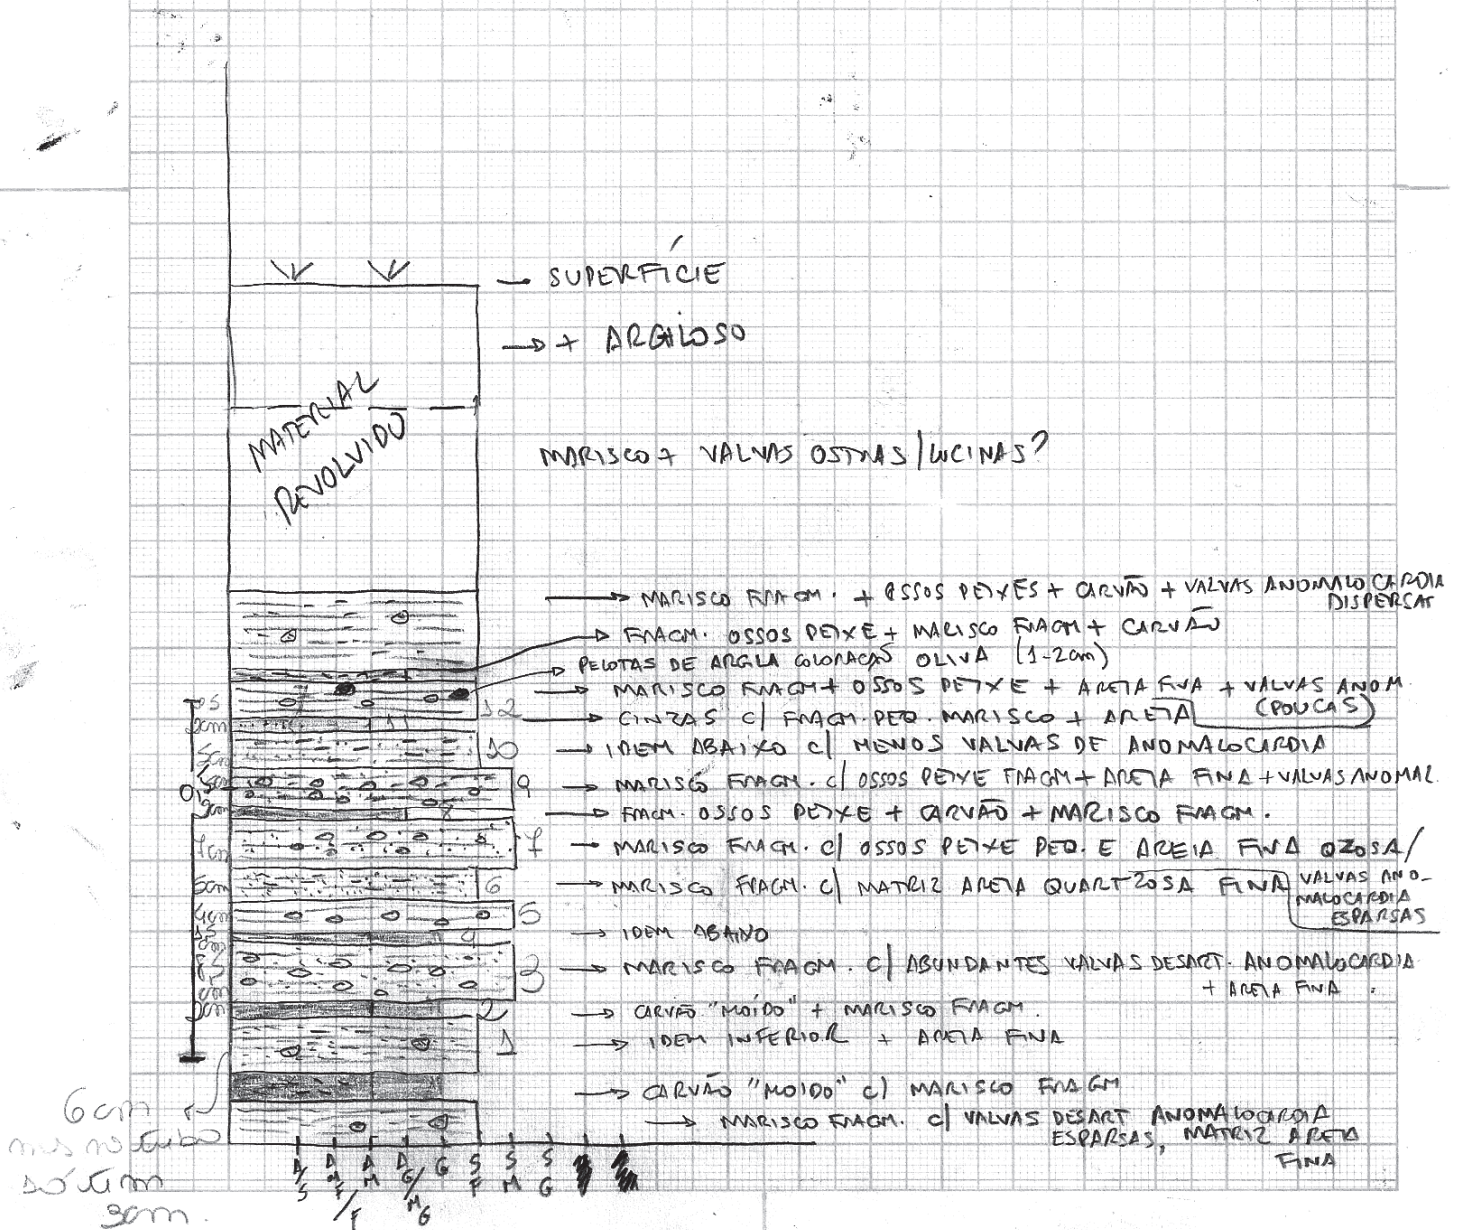 SUPERFÍCIE
+ ARGILOSO
MATERIAL
REVOLVIDO
MARISCO + VALVAS OSTRAS/LUCINAS?
MARISCO FRAGM. + OSSOS PEIXES + CARVÃO + VALVAS ANOMALOCARDIA
DISPERSAS
FRAGM. OSSOS PEIXE + MARISCO FRAGM + CARVÃO
PELOTAS DE ARGILA COLORAÇÃO OLIVA (1-2cm)
MARISCO FRAGM + OSSOS PEIXE + AREIA FINA + VALVAS ANOM.
(POUCAS)
12
CINZAS C/ FRAGM. PEQ. MARISCO + AREIA
11
10
IDEM ABAIXO C/ MENOS VALVAS DE ANOMALOCARDIA
5cm
9
MARISCO FRAGM. C/ OSSOS PEIXE FRAGM + AREIA FINA + VALVAS ANOMAL.
8
FRAGM. OSSOS PEIXE + CARVÃO + MARISCO FRAGM.
7cm
7
MARISCO FRAGM. C/ OSSOS PEIXE PEQ. E AREIA FINA QZOSA/
VALVAS ANO-
MALOCARDIA
ESPARSAS
5cm
6
MARISCO FRAGM. C/ MATRIZ AREIA QUARTZOSA FINA
4cm
5
4
IDEM ABAIXO
3
MARISCO FRAGM. C/ ABUNDANTES VALVAS DESART. ANOMALOCARDIA
+ AREIA FINA.
2
CARVÃO "MOÍDO" + MARISCO FRAGM.
1
IDEM INFERIOR + AREIA FINA
CARVÃO "MOIDO" C/ MARISCO FRAGM
MARISCO FRAGM. C/ VALVAS DESART ANOMALOCARDIA
ESPARSAS, MATRIZ AREIA
FINA
6cm
mas no tubo
só tem
3cm.
A/S AMF/F AM AG/MG G SF SM SG